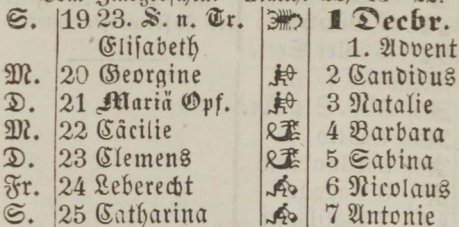 S. 19 23. S. n. Tr. 1 Decbr.
Elisabeth 1. Advent
M. 20 Georgine 2 Candidus
D. 21 Mariä Opf. 3 Natalie
M. 22 Cäcilie 4 Barbara
D. 23 Clemens 5 Sabina
Fr. 24 Leberecht 6 Nicolaus
S. 25 Catharina 7 Antonie